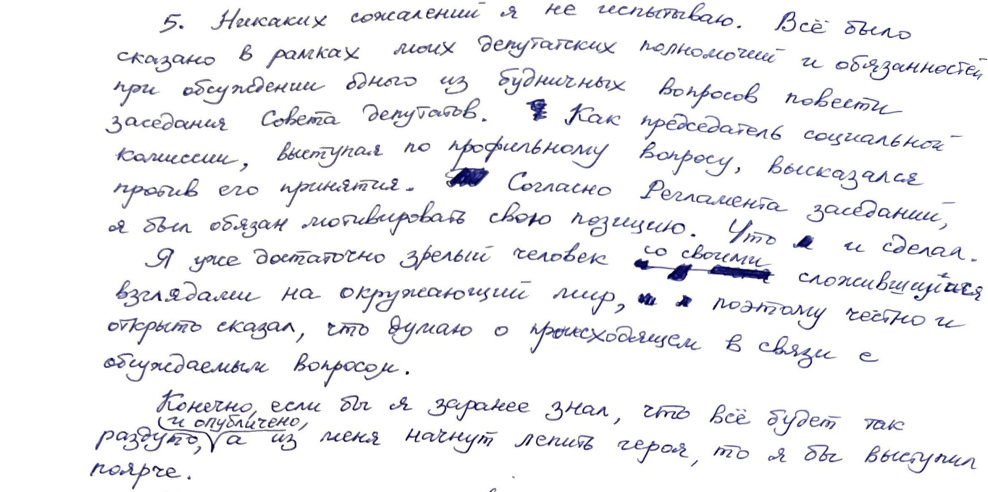 5. Никаких сожалений я не испытываю. Всё было
сказано в рамках моих депутатских полномочий и обязанностей
при обсуждении одного из будничных вопросов повестки
заседания Совета депутатов. Как председатель социальной
комиссии, выступая по профильному вопросу, высказался
против его принятия. Согласно Регламента заседаний,
я был обязан мотивировать свою позицию. Что и сделал.
Я уже достаточно зрелый человек со своими сложившимися
взглядами на окружающий мир, поэтому честно и
открыто сказал, что думаю о происходящем в связи с
обсуждаемым вопросом.
Конечно, если бы я заранее знал, что всё будет так
и опубличено,
раздуто, а из меня начнут лепить героя, то я бы выступил
поярче.